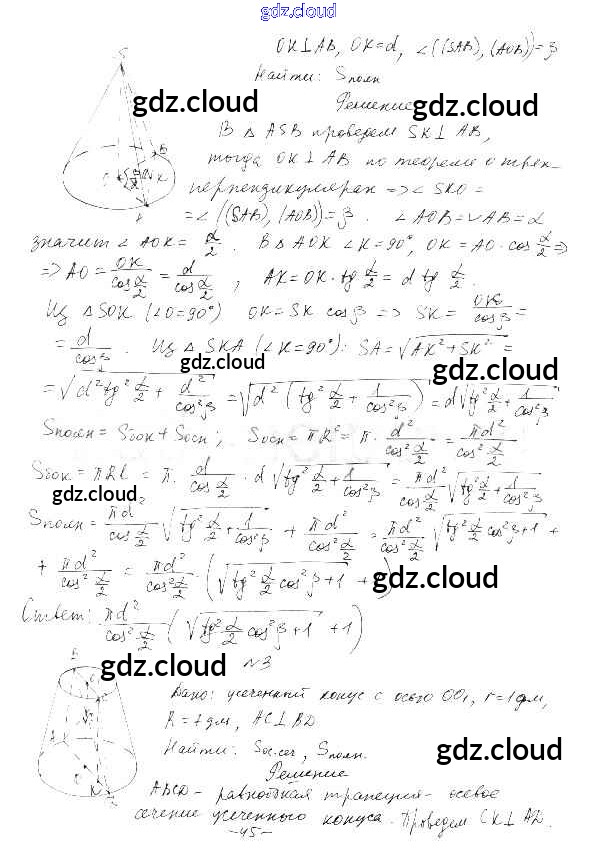 gdz.cloud
OK⊥AB, OK=d, ∠((SAB), (AOB))=β
Найти: Sполн
Решение
gdz.cloud
gdz.cloud
В △ ASB проведем SK⊥ AB,
тогда OK⊥ AB по теореме о трех
перпендикулярах => ∠ SKO =
= ∠((SAB), (AOB))= β. ∠ AOB = ◡AB = α
значит ∠ AOK = α/2. В △ AOK ∠ K=90°, OK = AO · cos α/2 =>
=> AO = OK/cos α/2 = d/cos α/2, AK = OK · tg α/2 = d tg α/2.
Из △ SOK (∠O=90°) OK = SK cos β => SK = OK/cos β =
= d/cos β. Из △ SKA (∠K=90°): SA = √(AK² + SK²) =
gdz.cloud
gdz.cloud
= √(d² tg² α/2 + d²/cos² β) = √(d² (tg² α/2 + 1/cos² β)) = d √(tg² α/2 + 1/cos² β)
gdz.cloud
Sполн = Sбок + Sосн; Sосн = πR² = π · d²/cos² α/2 = πd²/cos² α/2
Sбок = πRl = π · d/cos α/2 · d √(tg² α/2 + 1/cos² β) = πd²/cos α/2 √(tg² α/2 + 1/cos² β)
gdz.cloud
gdz.cloud
Sполн = πd²/cos α/2 √(tg² α/2 + 1/cos² β) + πd²/cos² α/2 = πd²/cos² α/2 √(tg² α/2 cos² β + 1) +
+ πd²/cos² α/2 = πd²/cos² α/2 (√(tg² α/2 cos² β + 1) + )
gdz.cloud
Ответ: πd²/cos² α/2 (√(tg² α/2 cos² β + 1) + 1)
gdz.cloud
N3
Дано: усеченный конус с осью OO₁, r=1дм,
R = 7дм, AC⊥BD
gdz.cloud
Найти: Sос.сеч, Sполн.
Решение
ABCD – равнобокая трапеция – осевое
сечение усеченного конуса. Проведем CK⊥ AD.
-45-